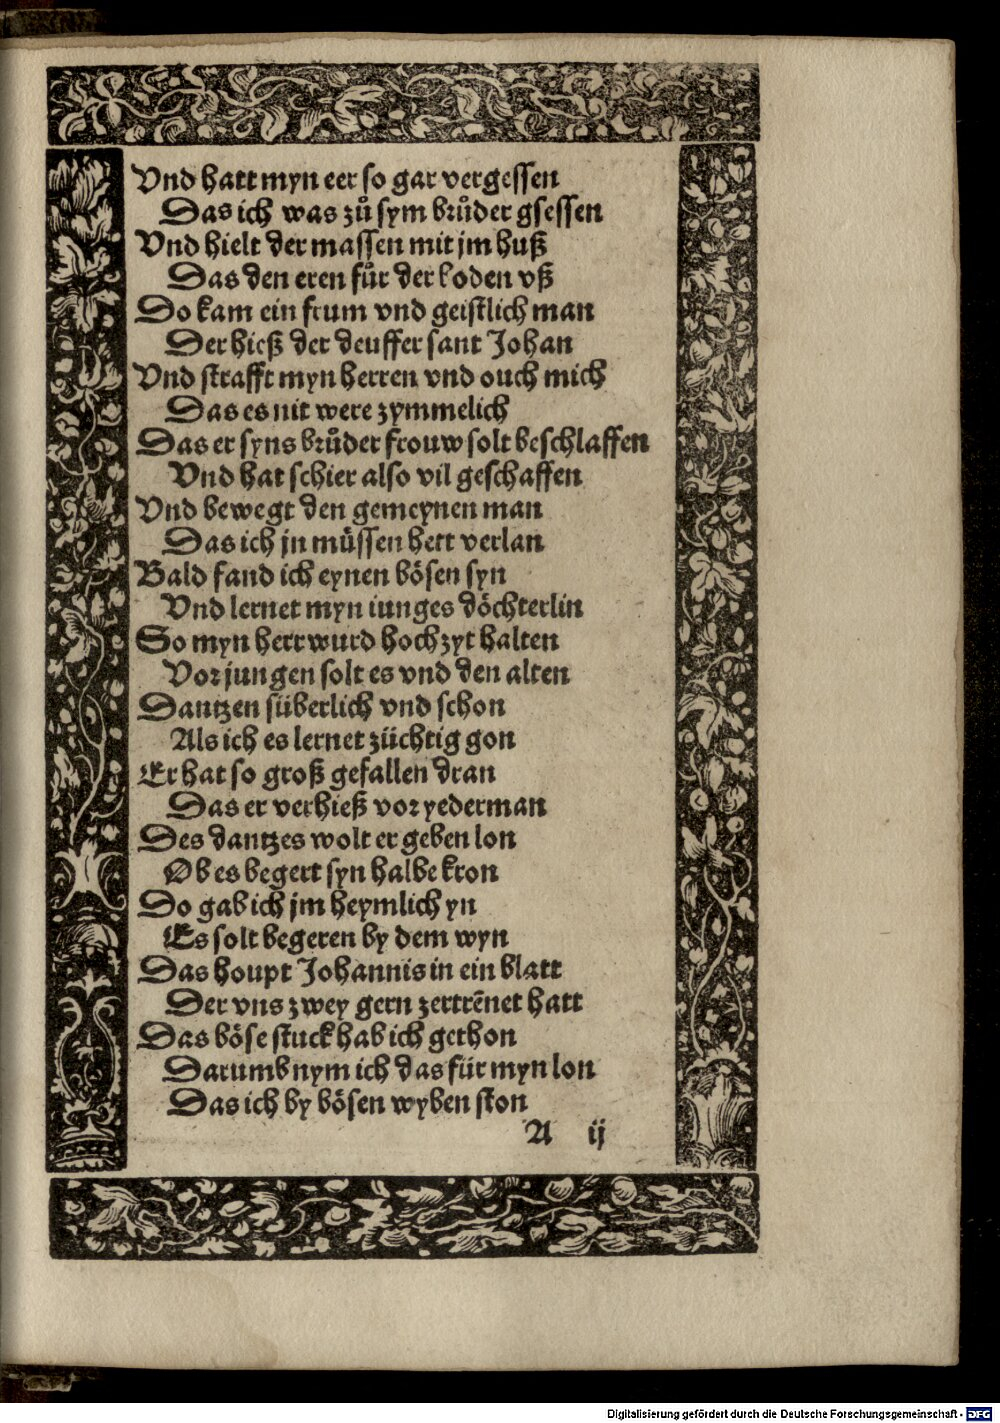 Vnd hatt myn eer so gar vergessen
Das ich was zů sym brůder gsessen
Vnd hielt der massen mit jm huß
Das den eren fůr der boden vß
Do kam ein frum vnd geistlich man
Der hieß der deuffer sant Johan
Vnd strafft myn herren vnd ouch mich
Das es nit were zymmelich
Das er syns brůder frouw solt beschlaffen
Vnd hat schier also vil geschaffen
Vnd bewegt den gemeynen man
Das ich jn müssen hett verlan
Bald fand ich eynen bösen syn
Vnd lernet myn iunges döchterlin
So myn herr wurd hochzyt halten
Vor jungen solt es vnd den alten
Dantzen süberlich vnd schon
Als ich es lernet züchtig gon
Er hat so groß gefallen dran
Das er verhieß vor yederman
Des dantzes wolt er geben lon
Ob es begert syn halbe kron
Do gab ich jm heymlich yn
Es solt begeren by dem wyn
Das houpt Johannis in ein blatt
Der vns zwey gern zertrēnet hatt
Das böse stuck hab ich gethon
Darumb nym ich das für myn lon
Das ich by bösen wyben ston
A ij
Digitalisierung gefördert durch die Deutsche Forschungsgemeinschaft - DFG